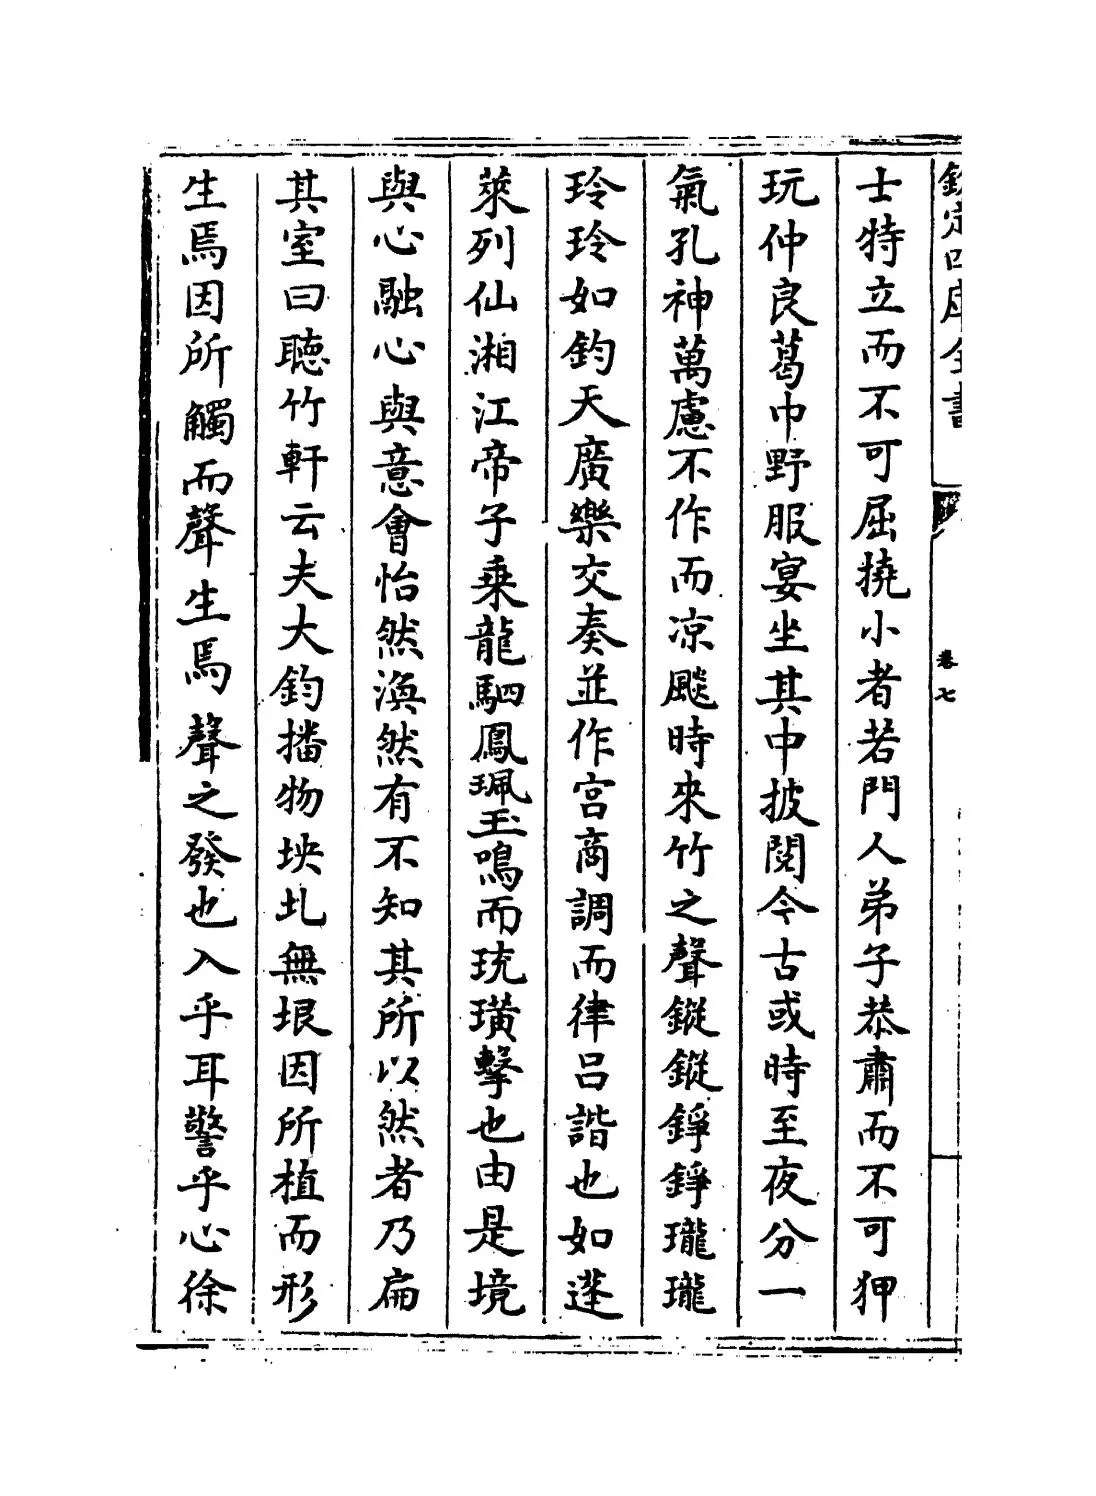 欽定四庫全書
卷七
士特立而不可屈撓小者若門人弟子恭肅而不可狎
玩仲良葛巾野服宴坐其中披閱今古或時至夜分一
氣孔神萬慮不作而凉飈時來竹之聲鏦鏦錚錚瓏瓏
玲玲如鈞天廣樂交奏並作宮商調而律呂諧也如蓬
萊列仙湘江帝子乘龍駟鳳珮玉鳴而珫璜擊也由是境
與心融心與意會怡然渙然有不知其所以然者乃扁
其室曰聴竹軒云夫大鈞播物坱圠無垠因所植而形
生焉因所觸而聲生焉聲之發也入乎耳警乎心徐